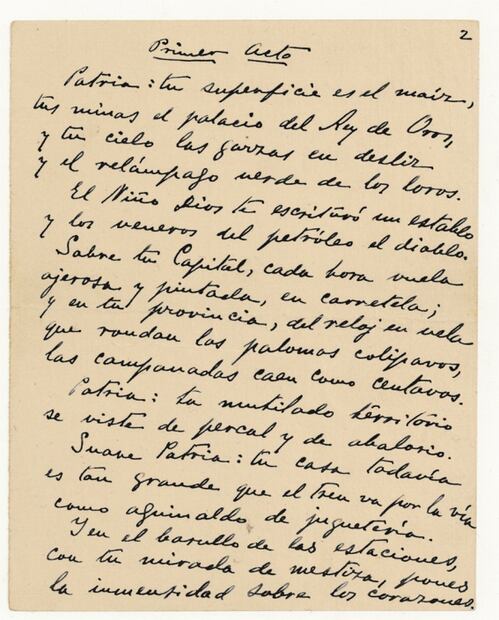 2
Primer Acto
Patria: tu superficie es el maíz,
tus minas el palacio del Rey de Oros,
y tu cielo las garzas en desliz
y el relámpago verde de los loros.
El Niño Dios te escrituró un establo
y los veneros del petróleo el diablo.
Sobre tu Capital, cada hora vuela
ojerosa y pintada, en carretela;
y en tu provincia, del reloj en vela
que rondan las palomas colipavos,
las campanadas caen como centavos.
Patria: tu mutilado territorio
se viste de percal y de abalorio.
Suave Patria: tu casa todavía
es tan grande que el tren va por la vía
como aguinaldo de juguetería.
Y en el barullo de las estaciones,
con tu mirada de mestiza, pones
la inmensidad sobre los corazones.